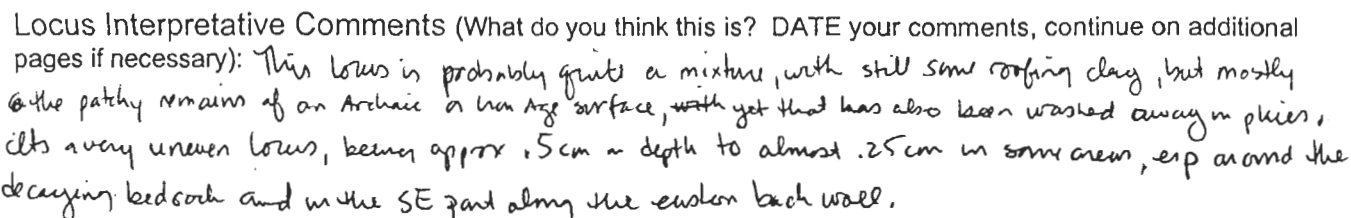 Locus Interpretative Comments (What do you think this is? DATE your comments, continue on additional
pages if necessary): This locus is probably quite a mixture, with still some roofing clay, but mostly
the patchy remains of an Archaic or Iron Age surface, with yet that has also been washed away in places.
Its a very uneven locus, being approx .5cm in depth to almost .25cm in some areas, esp around the
decaying bedrock and in the SE part along the eastern back wall.